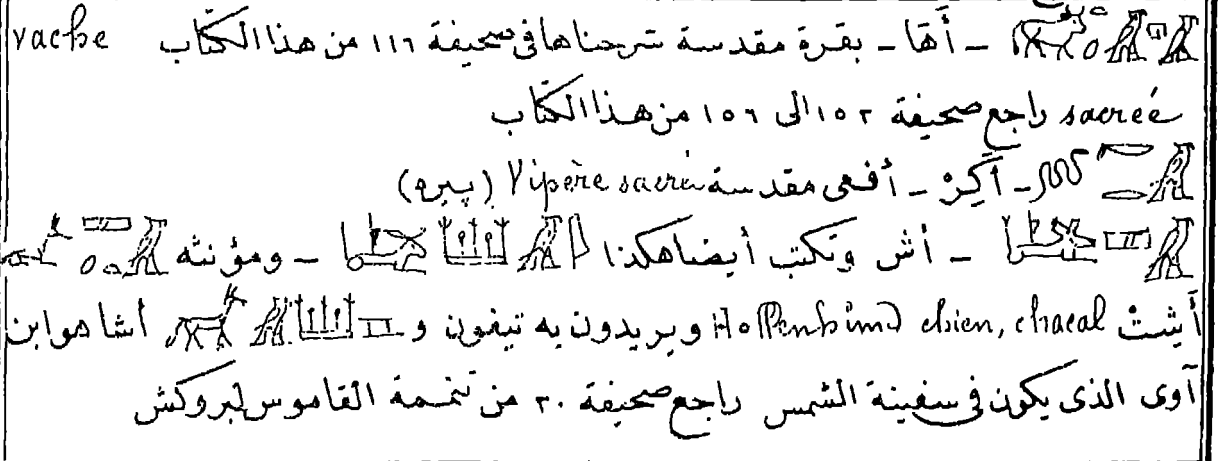 أَهَا - بقرة مقدسة شرحناها فى صحيفة ١١٦ من هذا الكتاب vache
sacrée راجع صحيفة ١٥٢ الى ١٥٦ من هذا الكتاب
أَكِرْ - أفعى مقدسة Vipère sacrée (پيره)
أش وتكتب أيضا هكذا - ومؤنثه
أَيِشتْ Höllenhund chien, chacal ويريدون به تيفون و أشا هو ابن
آوى الذى يكون فى سفينة الشمس راجع صحيفة ٢٠ من تتمة القاموس لبروكش